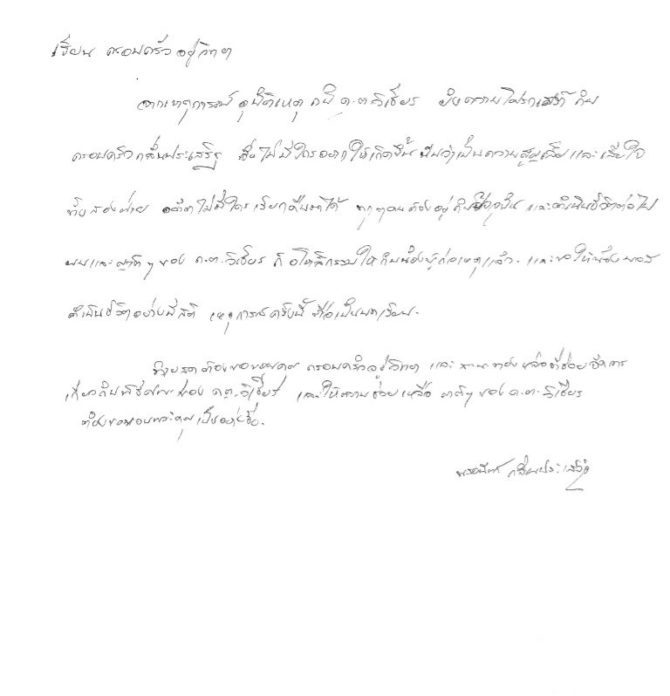 เรียน ครอบครัวอยู่วิทยา
จากเหตุการณ์ อุบัติเหตุ กับ ด.ต.วิเชียร ยังความโศกเศร้า กับ
ครอบครัวกลั่นประเสริฐ ซึ่งไม่มีใครอยากให้เกิดขึ้น นับว่าเป็นความสูญเสีย และ เสียใจ
ทั้งสองฝ่าย อดีตไม่มีใครเรียกคืนมาได้ ทุกคนต้องอยู่กับปัจจุบัน และดำเนินชีวิตต่อไป
ผมและญาติๆ ของ ด.ต.วิเชียร ก็อโหสิกรรมให้กับน้องผู้ก่อเหตุแล้ว และขอให้น้อง
ดำเนินชีวิตอย่างมีสติ เหตุการณ์ครั้งนี้ถือเป็นบทเรียน.
ต้องขอขอบคุณ ครอบครัวอยู่วิทยา และ ที่ช่วยจัดการ
เกี่ยวกับพิธีศพของ ด.ต.วิเชียร และให้ความช่วยเหลือ ญาติๆ ของ ด.ต.วิเชียร
ต้องขอขอบพระคุณเป็นอย่างยิ่ง.
กลั่นประเสริฐ